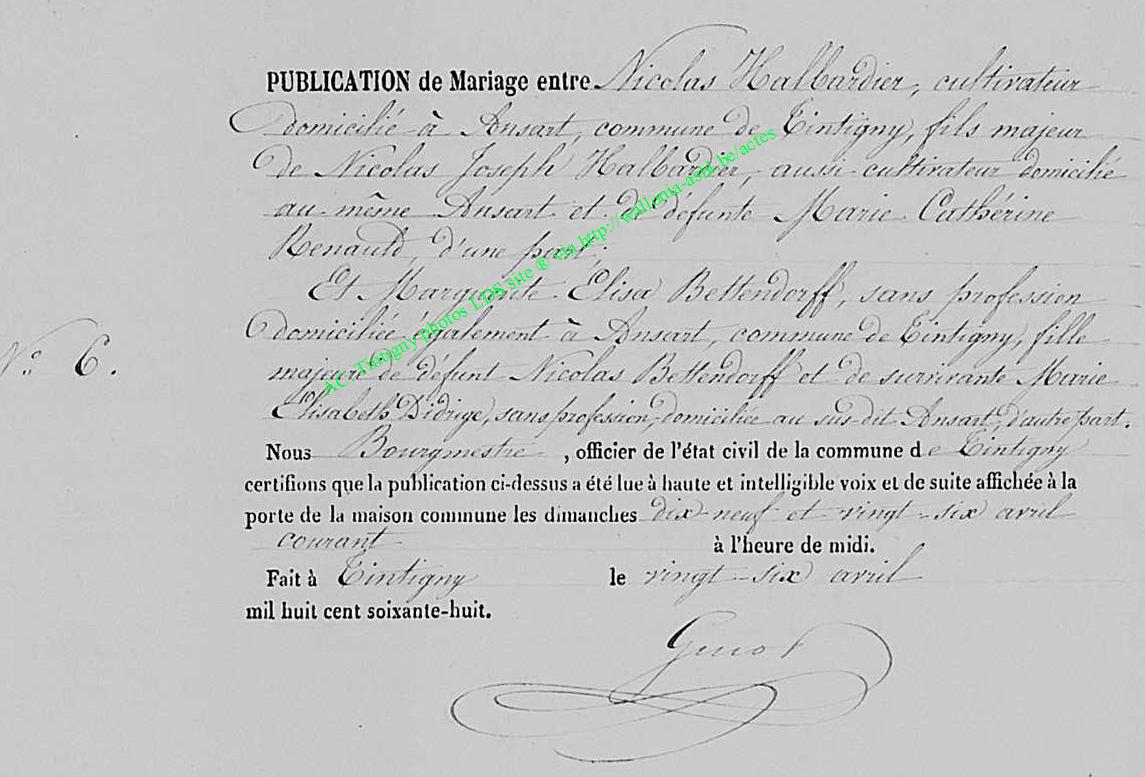 PUBLICATION de Mariage entre Nicolas Halbardier, cultivateur
domicilié à Ansart, commune de Tintigny, fils majeur
de Nicolas Joseph Halbardier, aussi cultivateur domicilié
au même Ansart et de défunte Marie Cathérine
Renauld, d'une part.
Et Marguerite Elisa Bettendorff, sans profession
domiciliée également à Ansart, commune de Tintigny, fille
N° 6.
majeure de défunt Nicolas Bettendorff et de survivante Marie
Elisabeth Didrige, sans profession, domiciliée au sus-dit Ansart, d'autre part.
Nous Bourgmestre, officier de l'état civil de la commune de Tintigny
certifions que la publication ci-dessus a été lue à haute et intelligible voix et de suite affichée à la
porte de la maison commune les dimanches dix-neuf et vingt-six avril
courant à l'heure de midi.
Fait à Tintigny le vingt-six avril
mil huit cent soixante-huit.
AC - Tintigny photos LDS site ® via http://wallonia-asbl.be/actes